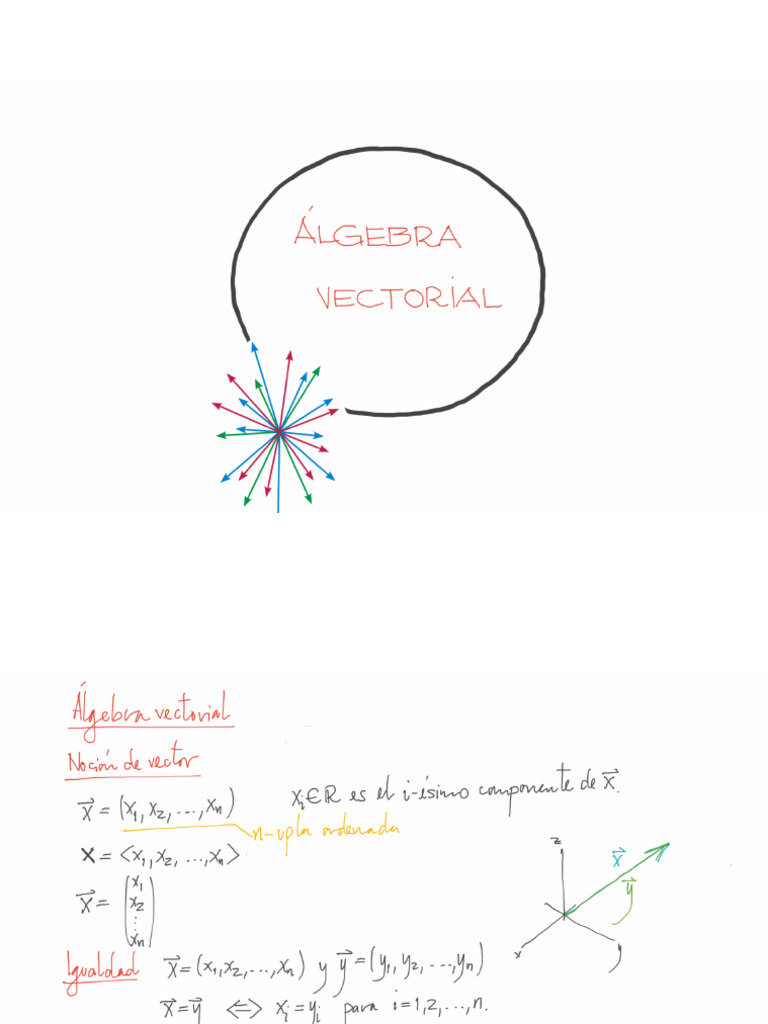 ÁLGEBRA
VECTORIAL
Álgebra vectorial
Noción de vector
x⃗ = (x₁, x₂, ..., xₙ)   xᵢ ∈ ℝ es el i-ésimo componente de x⃗.
n-upla ordenada
x = <x₁, x₂, ..., xₙ>
x⃗ = (x₁
x₂
⋮
xₙ)
z
x⃗
y⃗
x
y
Igualdad   x⃗ = (x₁, x₂, ..., xₙ) y y⃗ = (y₁, y₂, ..., yₙ)
x⃗ = y⃗ ⟺ xᵢ = yᵢ para i = 1, 2, ..., n.